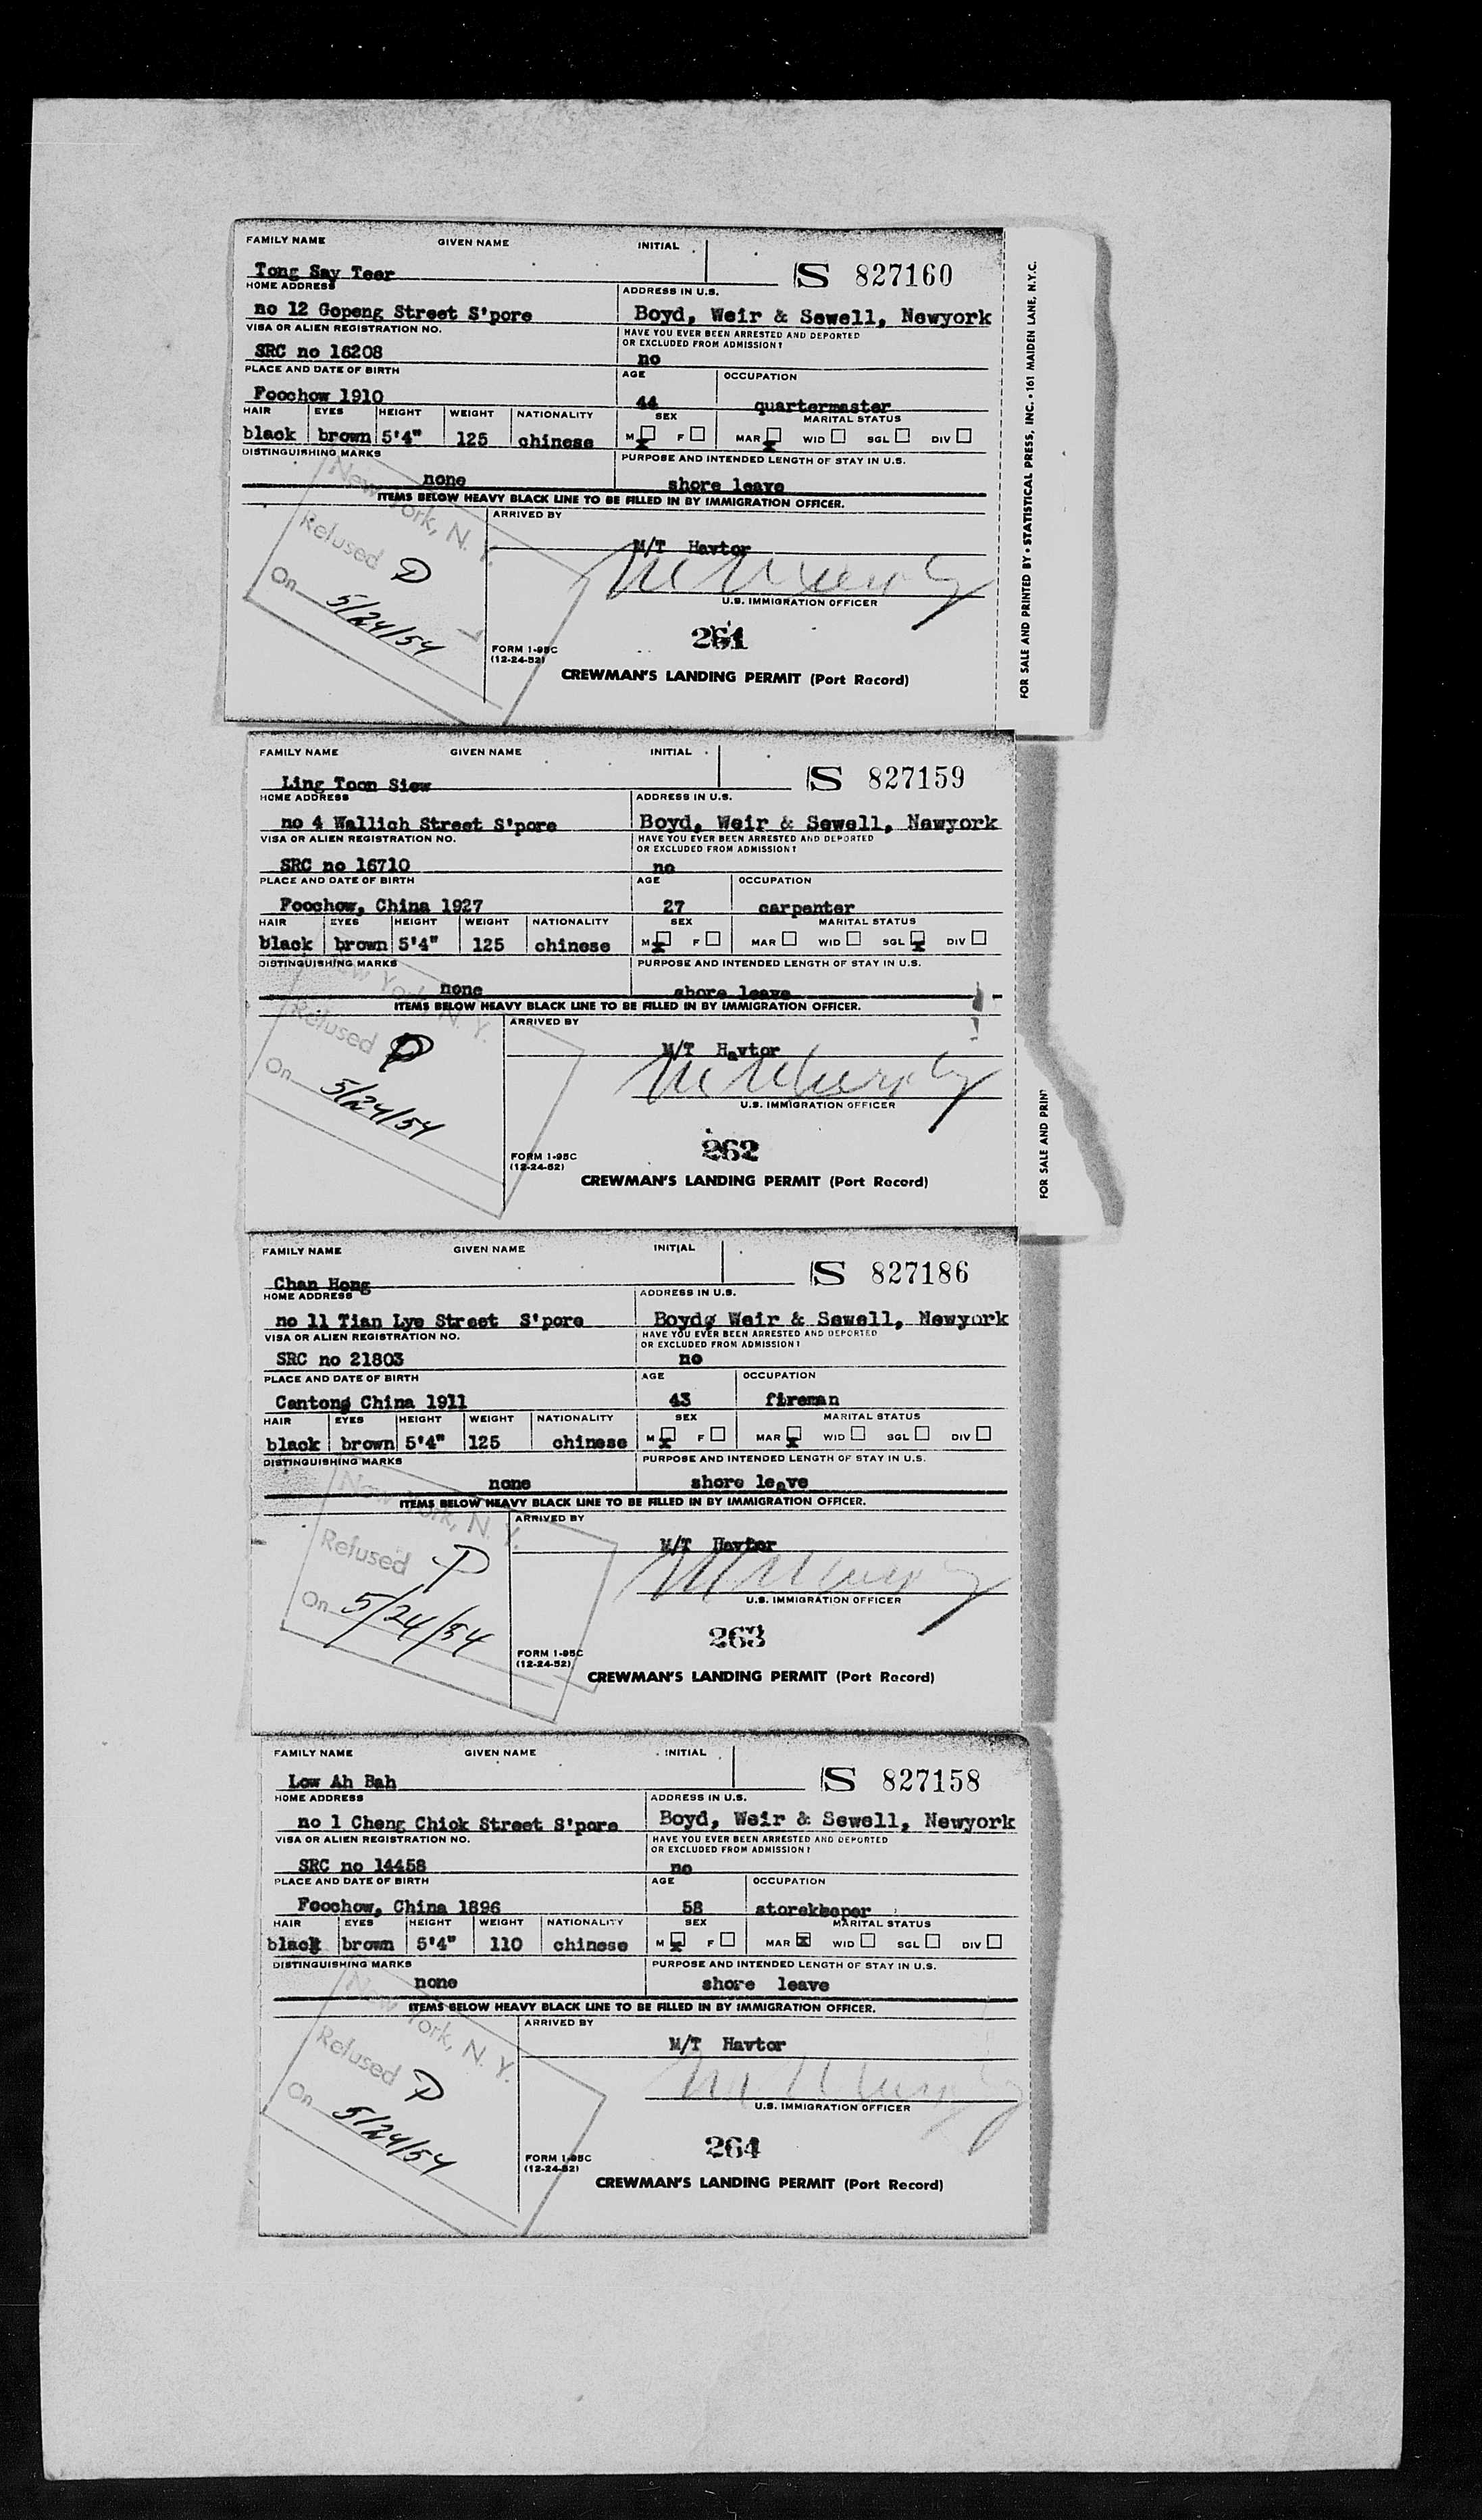 FAMILY NAME GIVEN NAME INITIAL
S 827160
Tong Say Teer
HOME ADDRESS ADDRESS IN U.S.
no 12 Gopeng Street S'pore Boyd, Weir & Sewell, Newyork
VISA OR ALIEN REGISTRATION NO. HAVE YOU EVER BEEN ARRESTED AND DEPORTED
OR EXCLUDED FROM ADMISSION?
SRC no 16208 no
PLACE AND DATE OF BIRTH AGE OCCUPATION
Foochow 1910 44 quartermaster
HAIR EYES HEIGHT WEIGHT NATIONALITY SEX MARITAL STATUS
black brown 5'4" 125 chinese M F MAR WID SGL DIV
DISTINGUISHING MARKS PURPOSE AND INTENDED LENGTH OF STAY IN U.S.
none shore leave
ITEMS BELOW HEAVY BLACK LINE TO BE FILLED IN BY IMMIGRATION OFFICER.
New York, N. Y.
Refused
On 5/24/54
ARRIVED BY
M/T Havtor
M Murphy
U.S. IMMIGRATION OFFICER
261
FORM I-95C
(12-24-52)
CREWMAN'S LANDING PERMIT (Port Record)
FOR SALE AND PRINTED BY • STATISTICAL PRESS, INC. • 161 MAIDEN LANE, N.Y.C.
FAMILY NAME GIVEN NAME INITIAL
S 827159
Ling Toon Siew
HOME ADDRESS ADDRESS IN U.S.
no 4 Wallich Street S'pore Boyd, Weir & Sewell, Newyork
VISA OR ALIEN REGISTRATION NO. HAVE YOU EVER BEEN ARRESTED AND DEPORTED
OR EXCLUDED FROM ADMISSION?
SRC no 16710 no
PLACE AND DATE OF BIRTH AGE OCCUPATION
Foochow, China 1927 27 carpenter
HAIR EYES HEIGHT WEIGHT NATIONALITY SEX MARITAL STATUS
black brown 5'4" 125 chinese M F MAR WID SGL DIV
DISTINGUISHING MARKS PURPOSE AND INTENDED LENGTH OF STAY IN U.S.
none shore leave
ITEMS BELOW HEAVY BLACK LINE TO BE FILLED IN BY IMMIGRATION OFFICER.
New York, N. Y.
Refused
On 5/24/54
ARRIVED BY
M/T Havtor
M Murphy
U.S. IMMIGRATION OFFICER
262
FORM I-95C
(12-24-52)
CREWMAN'S LANDING PERMIT (Port Record)
FOR SALE AND PRINT
FAMILY NAME GIVEN NAME INITIAL
S 827186
Chan Hong
HOME ADDRESS ADDRESS IN U.S.
no 11 Tian Lye Street S'pore Boydg Weir & Sewell, Newyork
VISA OR ALIEN REGISTRATION NO. HAVE YOU EVER BEEN ARRESTED AND DEPORTED
OR EXCLUDED FROM ADMISSION?
SRC no 21803 no
PLACE AND DATE OF BIRTH AGE OCCUPATION
Cantong China 1911 43 fireman
HAIR EYES HEIGHT WEIGHT NATIONALITY SEX MARITAL STATUS
black brown 5'4" 125 chinese M F MAR WID SGL DIV
DISTINGUISHING MARKS PURPOSE AND INTENDED LENGTH OF STAY IN U.S.
none shore leave
ITEMS BELOW HEAVY BLACK LINE TO BE FILLED IN BY IMMIGRATION OFFICER.
New York, N. Y.
Refused
On 5/24/54
ARRIVED BY
M/T Havtor
M Murphy
U.S. IMMIGRATION OFFICER
263
FORM I-95C
(12-24-52)
CREWMAN'S LANDING PERMIT (Port Record)
FAMILY NAME GIVEN NAME INITIAL
S 827158
Low Ah Bah
HOME ADDRESS ADDRESS IN U.S.
no 1 Cheng Chiok Street S'pore Boyd, Weir & Sewell, Newyork
VISA OR ALIEN REGISTRATION NO. HAVE YOU EVER BEEN ARRESTED AND DEPORTED
OR EXCLUDED FROM ADMISSION?
SRC no 14458 no
PLACE AND DATE OF BIRTH AGE OCCUPATION
Foochow, China 1896 58 storekeeper
HAIR EYES HEIGHT WEIGHT NATIONALITY SEX MARITAL STATUS
black brown 5'4" 110 chinese M F MAR WID SGL DIV
DISTINGUISHING MARKS PURPOSE AND INTENDED LENGTH OF STAY IN U.S.
none shore leave
ITEMS BELOW HEAVY BLACK LINE TO BE FILLED IN BY IMMIGRATION OFFICER.
New York, N. Y.
Refused
On 5/24/54
ARRIVED BY
M/T Havtor
M Murphy
U.S. IMMIGRATION OFFICER
264
FORM I-95C
(12-24-52)
CREWMAN'S LANDING PERMIT (Port Record)